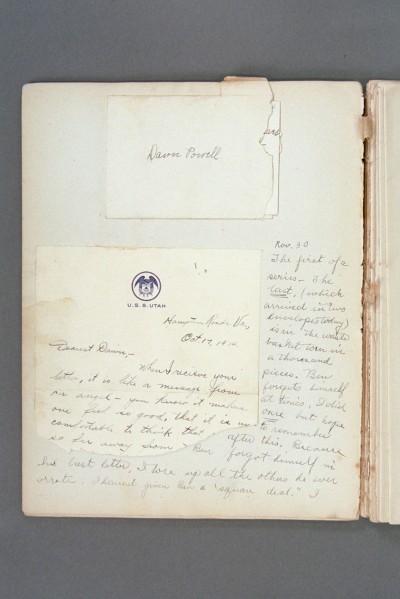 Dawn Powell
U.S.S. UTAH
Hampton Roads Va,
Oct 17, 1914
Dearest Dawn,-
When I recieve your
letter, it is like a message from
an angel - you know it makes
one feel so good, that it is
comfortable to think that
so far away from
Nov. 30
The first of a
series - The
last, (which
arrived in two
envelopes today)
is in the waste
basket torn in
a thousand
pieces. Ben
forgets himself
at times. I did
once but hope
to remember
after this. Because
Ben forgot himself in
his last letter, I tore up all the others he ever
wrote. I haven't given Ben a "square deal." I